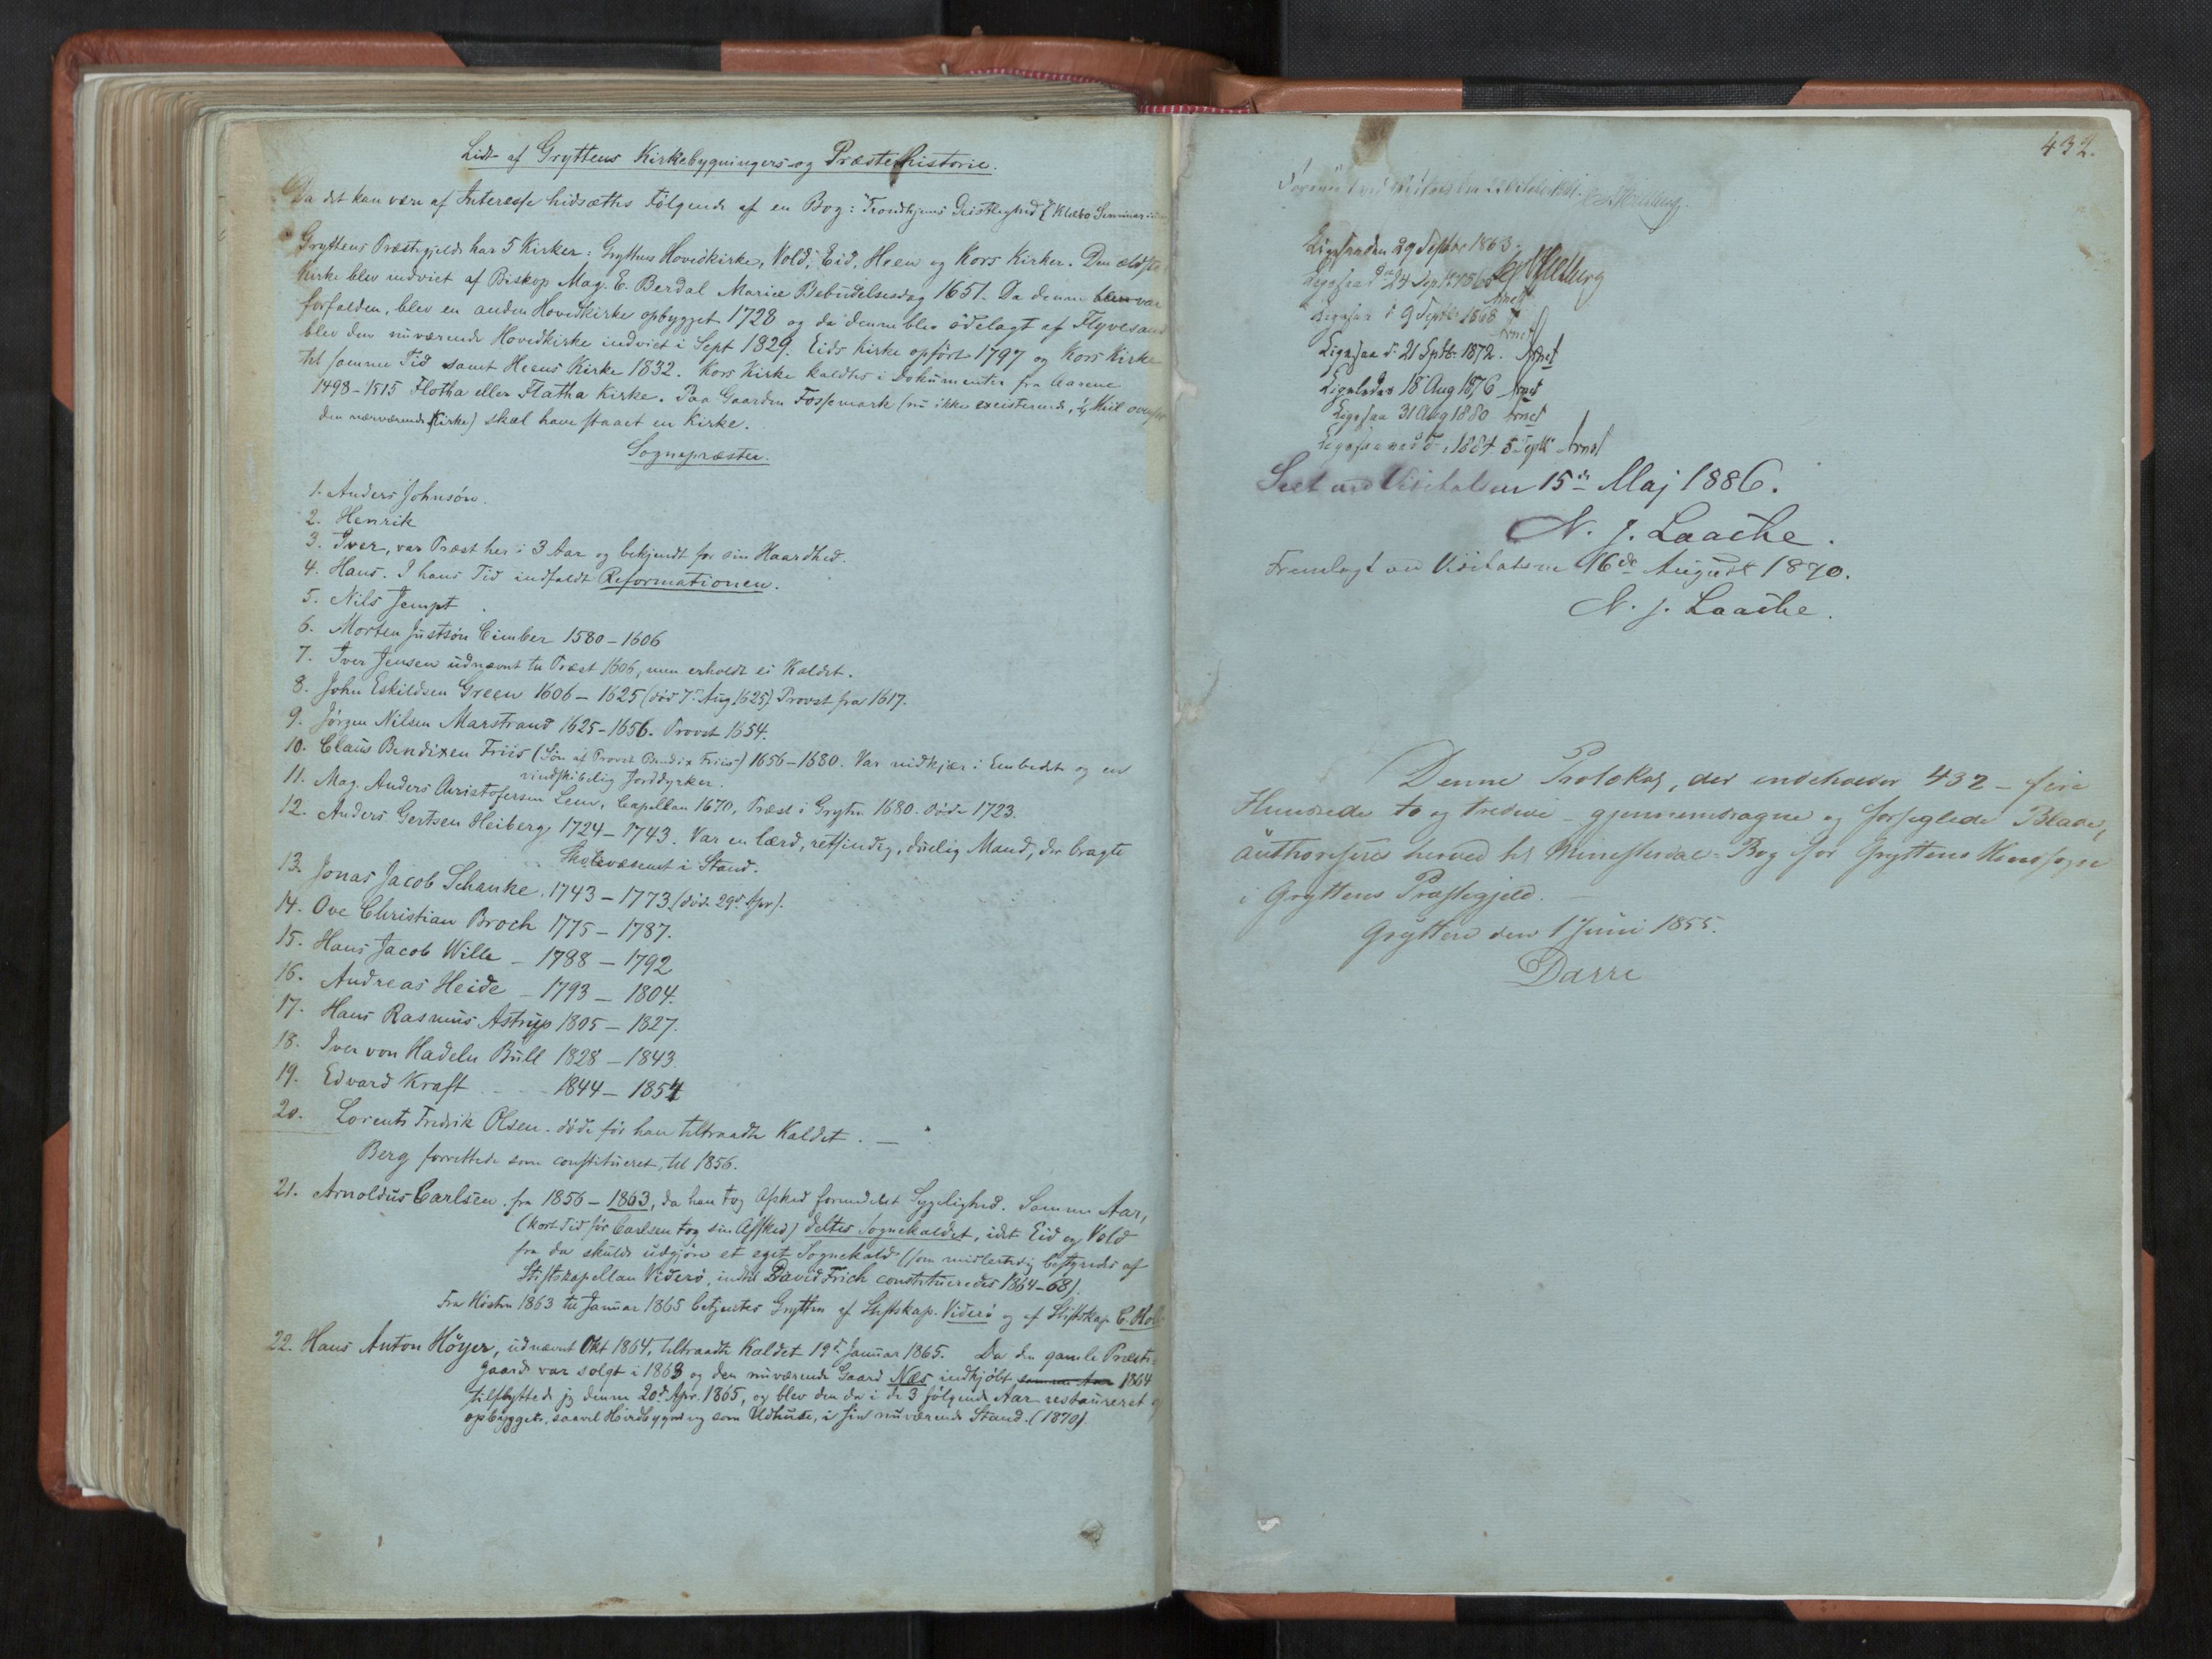 Lidt af Gryttens Kirkebygningers- og Præstehistorie.
Da det kan være af Interesse hidsættes Følgende af en Bog: Trondhjems Geistlighed (Klæbo Seminarium
Gryttens Præstegjeld har 5 Kirker: Gryttens Hovedkirke, Vold, Eid, Heen og Kors Kirker. Den ældste
Kirke blev indviet af Biskop Mag. E. Berdal Mariæ Bebudelsesdag 1651. Da denne blev var
forfalden, blev en anden Hovedkirke opbygget 1728 og da denne blev ödelagt af Flyvesand
blev den nuværende Hovedkirke indviet i Sept 1829. Eids Kirke opfört 1797 og Kors Kirke
til samme Tid samt Heens Kirke 1832. Kors Kirke kaldtes i Dokumenter fra Aarene
1498-1515 Flotha eller Flatha Kirke. Paa Gaarden Fossemark (nu ikke existerende, ½ Miil ovenfor
den nærværende Kirke) skal have staaet en Kirke.
Sognepræster.
1. Anders Johnsön.
2. Henrik
3. Iver, var Præst her i 3 Aar og bekjendt for sin Haardhed.
4. Hans. I hans Tid indfaldt Reformationen.
5. Nils Jempt
6. Morten Justsön Cimber 1580-1606
7. Iver Jensen udnævnt til Præst 1606, men erholdt ei Kaldet.
8. John Eskildsen Green 1606-1625 (död 7de Aug 1625) Provst fra 1617.
9. Jörgen Nilsen Marstrand 1625-1656. Provst 1654.
10. Claus Bendixen Friis (Sön af Provst Bendix Friis) 1656-1680. Var nidkjær i Embedet og en
vindskibelig Jorddyrker.
11. Mag. Anders Christofersen Lem, Capellan 1670, Præst i Grytten 1680. döde 1723.
12. Anders Gertsen Heiberg 1724-1743. Var en lærd, retsindig, duelig Mand, der bragte
Skolevæsenet i Stand.
13. Jonas Jacob Schanke. 1743-1773. (död 29de Apr).
14. Ove Christian Broch 1775-1787.
15. Hans Jacob Wille - 1788-1792
16. Andreas Heide - 1793-1804.
17. Hans Rasmus Astrup 1805-1827.
18. Iver von Hadeln Bull 1828-1843
19. Edvard Kraft - - - 1844-1854
20. Lorents Fredrik Olsen. döde för han tiltraadte Kaldet. -
Berg forrettede som constitueret, til 1856.
21. Arnoldus Carlsen. fra 1856-1863, da han tog Afsked formedelst Sygelighed. Samme Aar,
(kort Tid för Carlsen tog sin Afsked) deltes Sognekaldet, idet Eid og Vold
fra da skulde udgjöre et eget Sognekald (som midlertidig bestyredes af
Stiftskapellan Viderö, indtil David Frich constitueredes 1864-68).
Fra Hösten 1863 til Januar 1865 betjentes Grytten af Stiftskap. Viderö og af Stiftskap C.
22. Hans Anton Höyer, udnævnt Okt 1864, tiltraadte Kaldet 19de Januar 1865. Da den gamle Præste-
gaard var solgt i 1863 og den nuværende Gaard Næs indkjöbt samme Aar 1864
tilflyttede jeg denne 20de Apr. 1865, og blev den da i de 3 fölgende Aar restaureret og
opbygget, saavel Hovedbygning som Udhuse, i sin nuværende Stand. (1870)
432.
Ligesaa den 29 Septbr 1863.
Ligesaa d 24 Sept 1865
Ligesaa d 9 Septbr 1868 Arnet
Ligesaa d: 21 Sptb. 1872. Arnet
Ligeledes 18 Aug 1876 Arnet
Ligesaa 31 Aug 1880 Arnet
1884 5 Sept Arnet
Seet ved Visitatsen 15de Maj 1886.
N. J. Laache.
Fremlagt ved Visitatsen 16de August 1890.
N. J. Laache.
Denne Protokol, der indeholder 432 - fire
Hundrede to og tredive - gjennemdragne og forseglede Blade,
authoriseres herved til Ministerial-Bog for Gryttens Hovedsogn
i Gryttens Præstegjeld. -
Grytten den 1 Juni 1855.
Darre